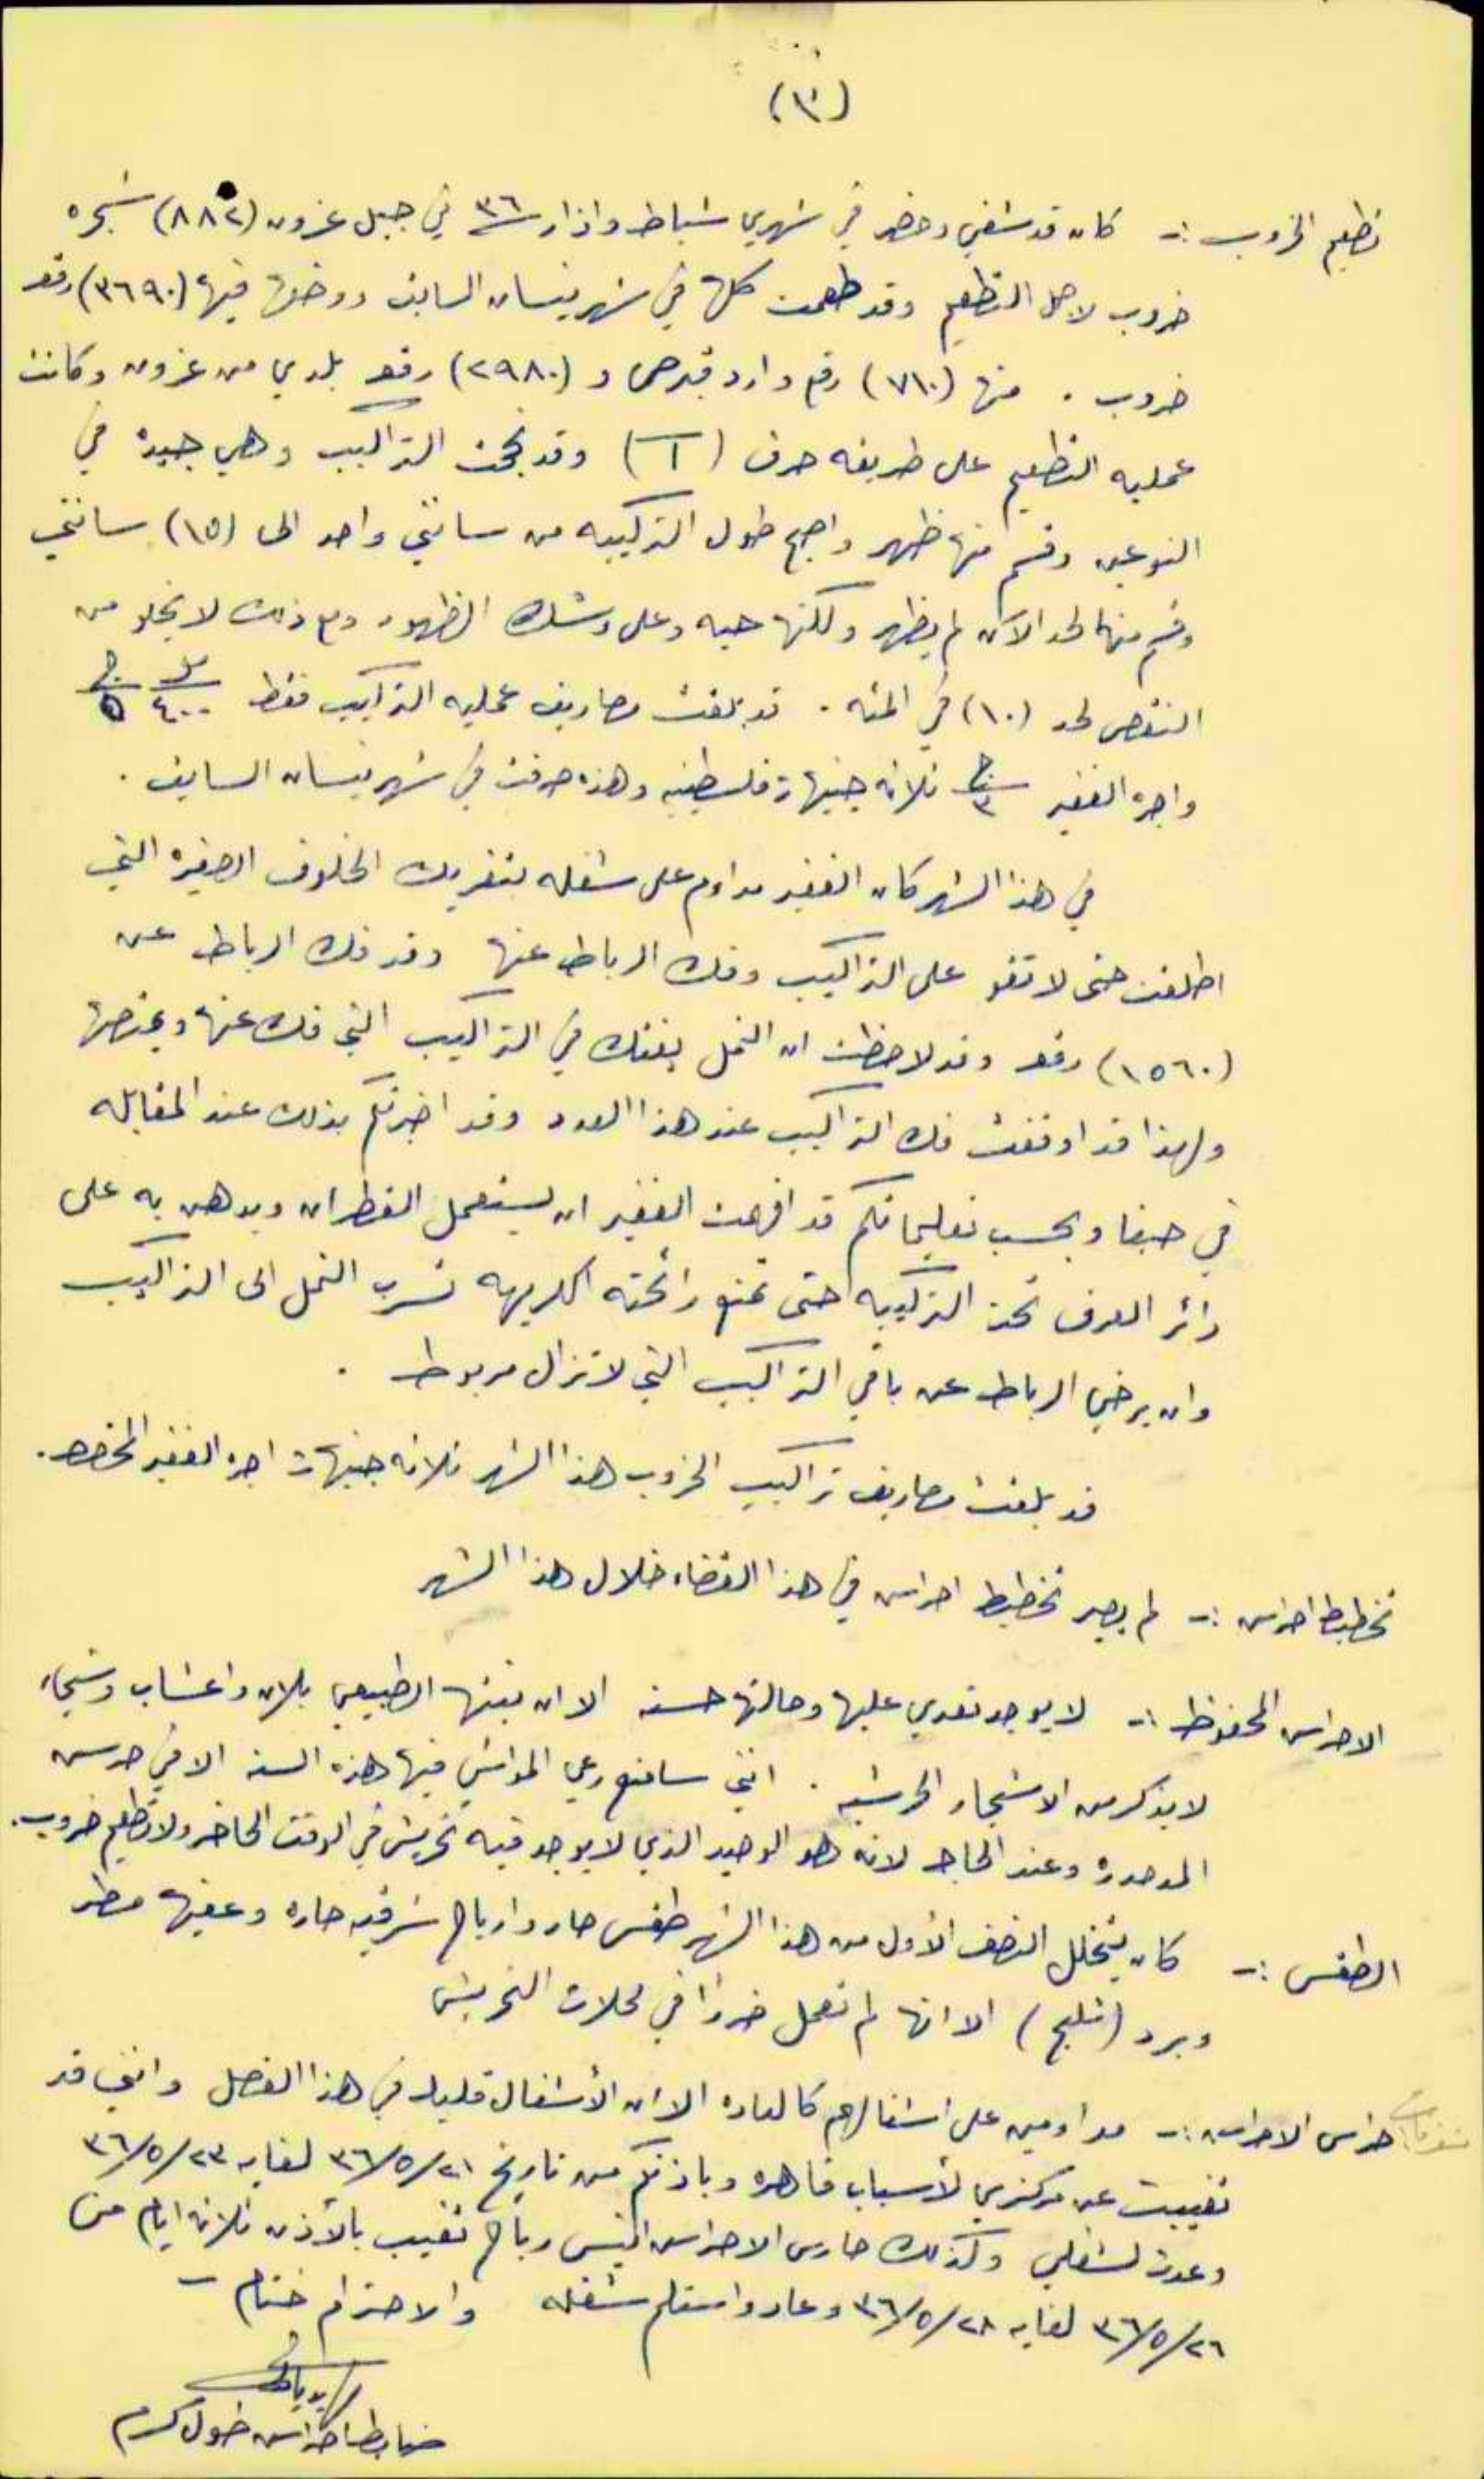 (٣)
تطعيم الخروب :- كان قد شفي وحضر في شهري شباط واذار ٣٦ في جبل عزون (٨٨٢) شجره
خروب لاجل التطعيم وقد طعمت كلها في شهر نيسان السابق ووضعت فيها (٣٦٩٠) رقعه
خروب . منها (٧١٠) رقع وارد قبرص و (٢٩٨٠) رقعه بلدي من عزون وكانت
عمليه التطعيم على طريقه حرف (T) وقد نجحت التراكيب وهي جيدة في
النوعين وقسم منها ظهر واصبح طول التركيبه من سانتي واحد الى (١٥) سانتي
وقسم منها لحد الآن لم يظهر ولكنها حيه وعلى وشك الظهور ومع ذلك لا يخلو من
النقص لحد (١٠) في المئه . قد بلغت مصاريف عمليه التراكيب فقط ٤٠٠ مل ٥ ج
واجرة الغفير ٣ ج ثلاثه جنيهات فلسطينيه وهذه صرفت في شهر نيسان السابق .
في هذا الشهر كان الغفير مداوم على شغله بتفريك الخلوف الصغيره التي
اطلقت حتى لا تقو على التراكيب وفك الرباط عنها وقد فك الرباط عن
(١٥٦٠) رقعه وقد لاحظت ان النمل يفتك في التراكيب التي فك عنها ويقرضها
ولهذا قد اوقفت فك التراكيب عند هذا العدد وقد اخبرتكم بذلك عند المقابله
في حيفا وبحسب تعليماتكم قد افهمت الغفير ان يستعمل القطران ويدهن به على
دائر العرف تحت التركيبه حتى تمنع رائحته الكريهه تسرب النمل الى التراكيب
وان يرخي الرباط عن باقي التراكيب التي لا تزال مربوطه .
قد بلغت مصاريف تراكيب الخروب هذا الشهر ثلاثه جنيهات اجرة الغفير المخصص .
تخطيط احراش :- لم يصير تخطيط احراش في هذا القضاء خلال هذا الشهر
الاحراش المحفوظه :- لا يوجد تعدي عليها وحالتها حسنه الا ان نبتها الطبيعي بلان واعشاب وشيء
لا يذكر من الاشجار الحرشيه . انني سامنع رعي المواشي فيها هذه السنه الا في حرش
المدحدره وعند الحاجه لانه هو الوحيد الذي لا يوجد فيه تحريش في الوقت الحاضر ولا تطعيم خروب .
الطقس :- كان يتخلل النصف الأول من هذا الشهر طقس حار وارياح شرقيه حاره وعقبها مطر
وبرد (ثلج) الا انها لم تعمل ضررا في محلات التحريش
حراس الاحراش :- مداومين على اشغالهم كالعاده الا ان الأشغال قليله في هذا الفصل وانني قد
تغيبت عن مركزي لأسباب قاهره وباذنكم من تاريخ ٣٦/٥/٢١ لغايه ٣٦/٥/٢٣
وعدت لشغلي وكذلك حارس الاحراش رباح تغيب بالأذن ثلاثه ايام من
٣٦/٥/٢٦ لغايه ٣٦/٥/٢٨ وعاد واستلم شغله والاحترام ختام -
ضابط احراش طول كرم